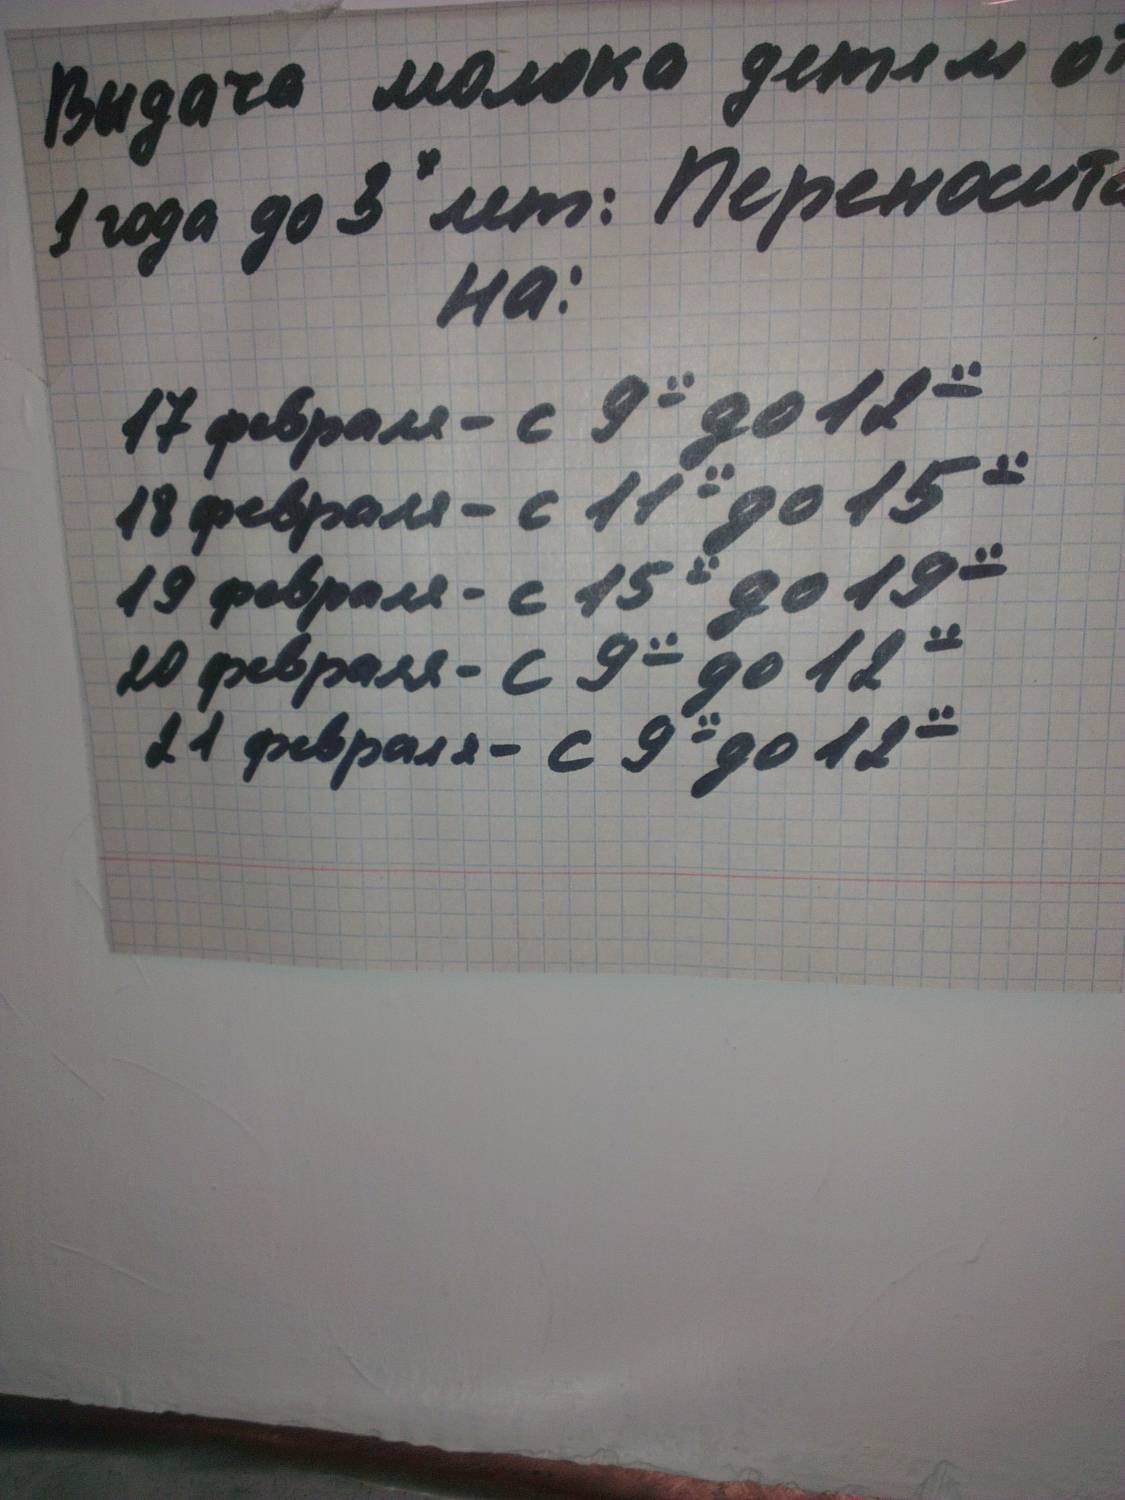 Выдача молока детям от
1 года до 3х лет: Переносит
на:
17 февраля - с 9⁰⁰ до 12⁰⁰
18 февраля - с 11⁰⁰ до 15⁰⁰
19 февраля - с 15⁰⁰ до 19⁰⁰
20 февраля - с 9⁰⁰ до 12⁰⁰
21 февраля - с 9⁰⁰ до 12⁰⁰